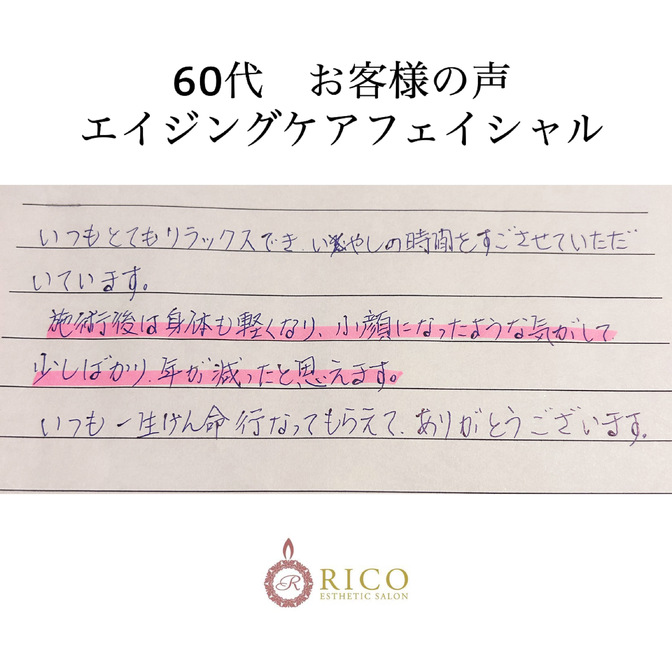 60代 お客様の声
エイジングケアフェイシャル
いつもとてもリラックスでき、いやしの時間をすごさせていただ
いています。
施術後は身体も軽くなり、小顔になったような気がして
少しばかり、年が減ったと思えます。
いつも一生けん命行なってもらえて、ありがとうございます。
R
RICO
ESTHETIC SALON